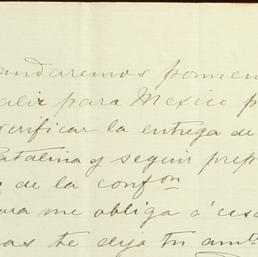 andaremos ponien
alir para Mexico p
verificar la entrega de
Catalina y seguir prep
de la confon
ura me obliga á ces
as te deja tu amte